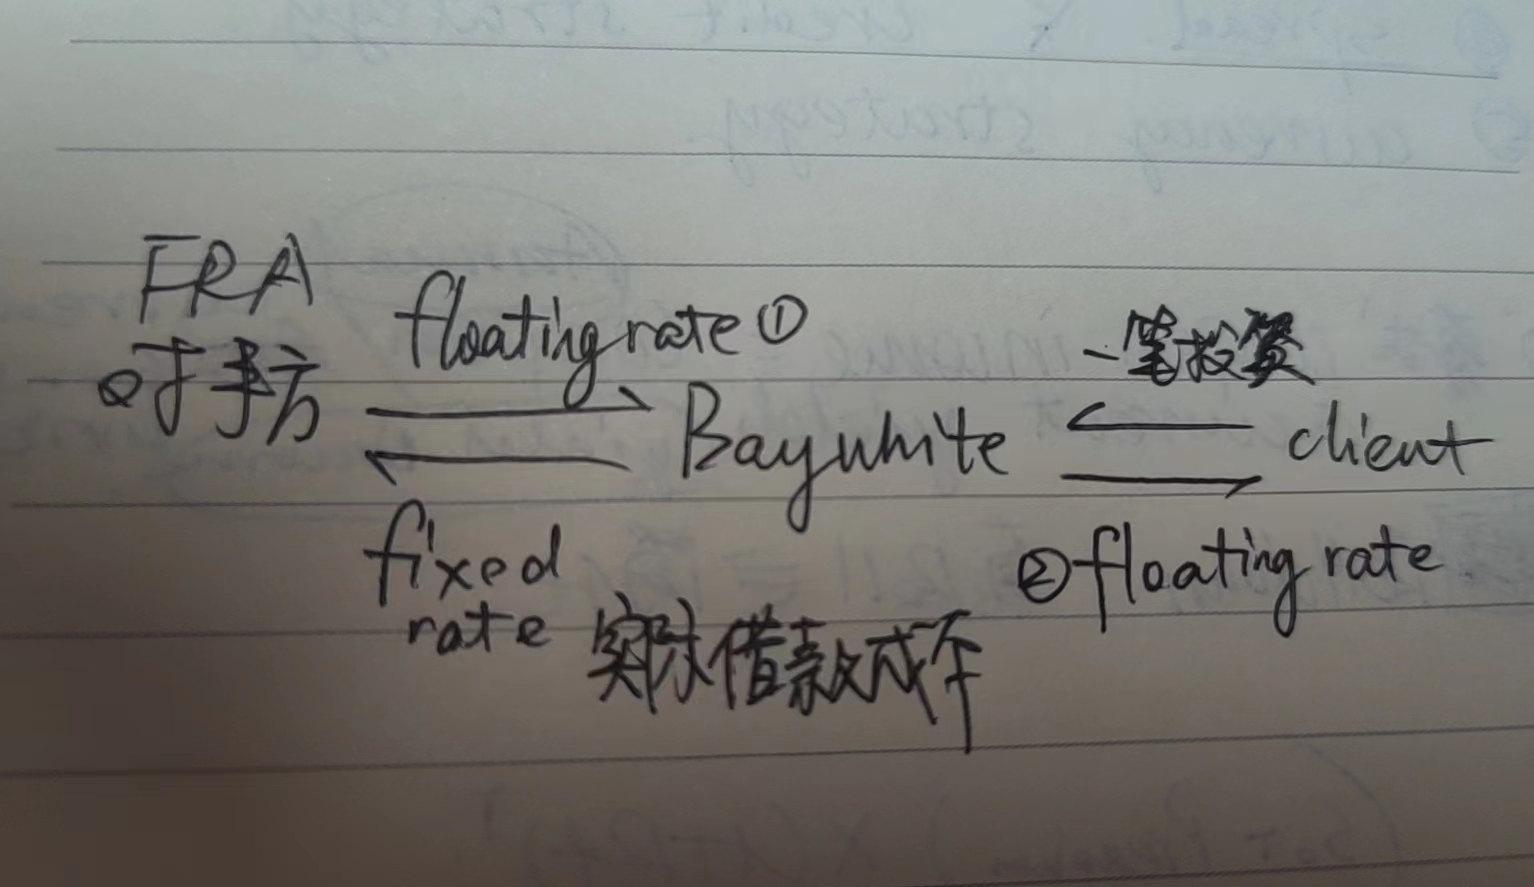 FRA
对手方
floating rate ①
一笔投资
Baywhite
client
fixed
rate
实际借款成本
② floating rate